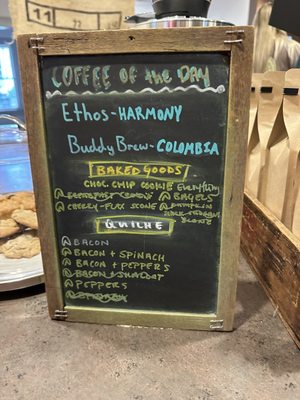 11
COFFEE OF the DAY
Ethos-HARMONY
Buddy Brew-COLOMBIA
BAKED GOODS
CHOC. CHIP COOKIE Everything
BREAKFAST COOKIE BAGELS
CHEEZY-FLAX SCONE PUMPKIN
SCONE
QUICHE
BACON
BACON + SPINACH
BACON + PEPPERS
BACON + SHALLOT
PEPPERS